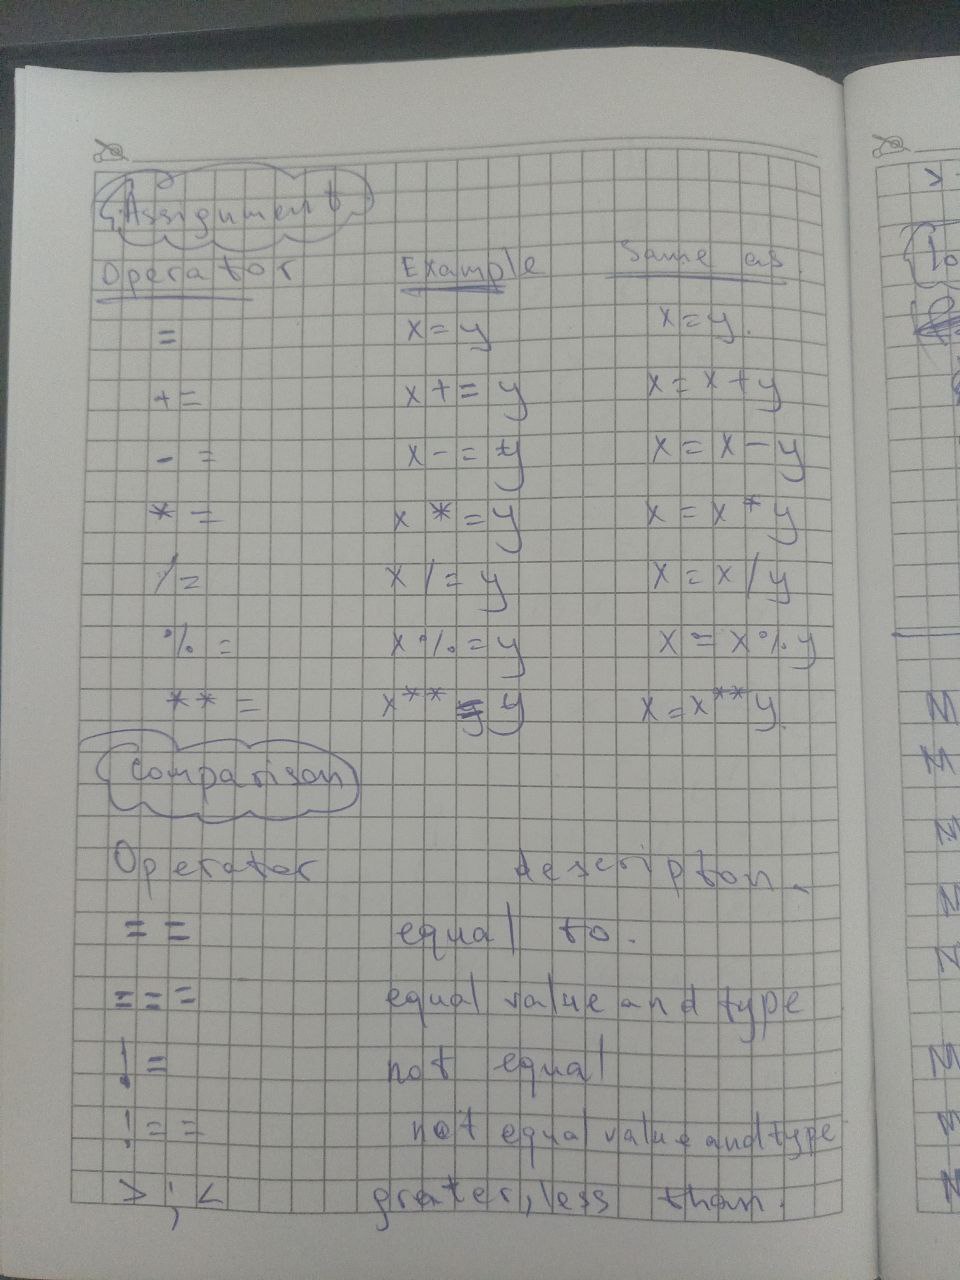 Assignment
Operator Example Same as.
= x = y x = y.
+ = x + = y x = x + y
- = x - = y x = x - y
* = x * = y x = x * y
/ = x / = y x = x / y
% = x % = y x = x % y
* * = x ** = y x = x ** y.
Comparison
Operator descripton.
= = equal to.
= = = equal value and type
! = not equal
! = = not equal value and type
> ; < grater, less than.
>
M
M
M
M
N
M
M
M